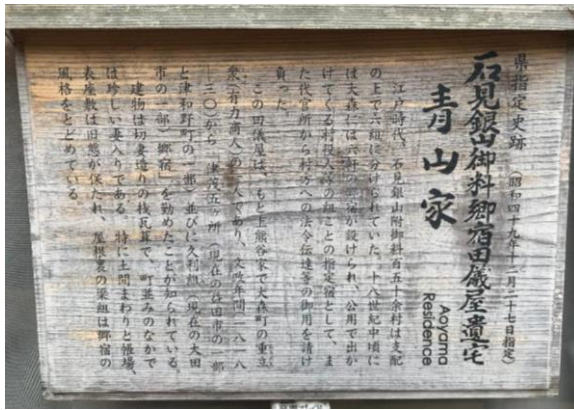 県指定史跡（昭和四十九年十二月二十七日指定）
石見銀山御料郷宿田儀屋遺宅
青山家
Aoyama
Residence
江戸時代、石見銀山附御料百五十余村は支配
の上で六組に分けられていた。十八世紀中頃に
は大森には六軒の郷宿が設けられ、公用で出か
けてくる村役人等の組ごとの指定宿として、ま
た代官所から村方への法令伝達等の御用を請け
負った。
この田儀屋は、もと上熊谷家で大森町の重立
衆（有力商人）の一人であり、文政年間（一八一八
―三〇）から、津茂五ヶ所（現在の益田市の一部
と津和野町の一部）並びに久利組（現在の大田
市の一部）郷宿を勤めたことが知られている。
建物は切妻造りの桟瓦葺で、町並みのなかで
は珍しい妻入りである。特に土間まわりと帳場、
表座敷は旧態が保たれ、屋根裏の梁組は郷宿の
風格をとどめている。